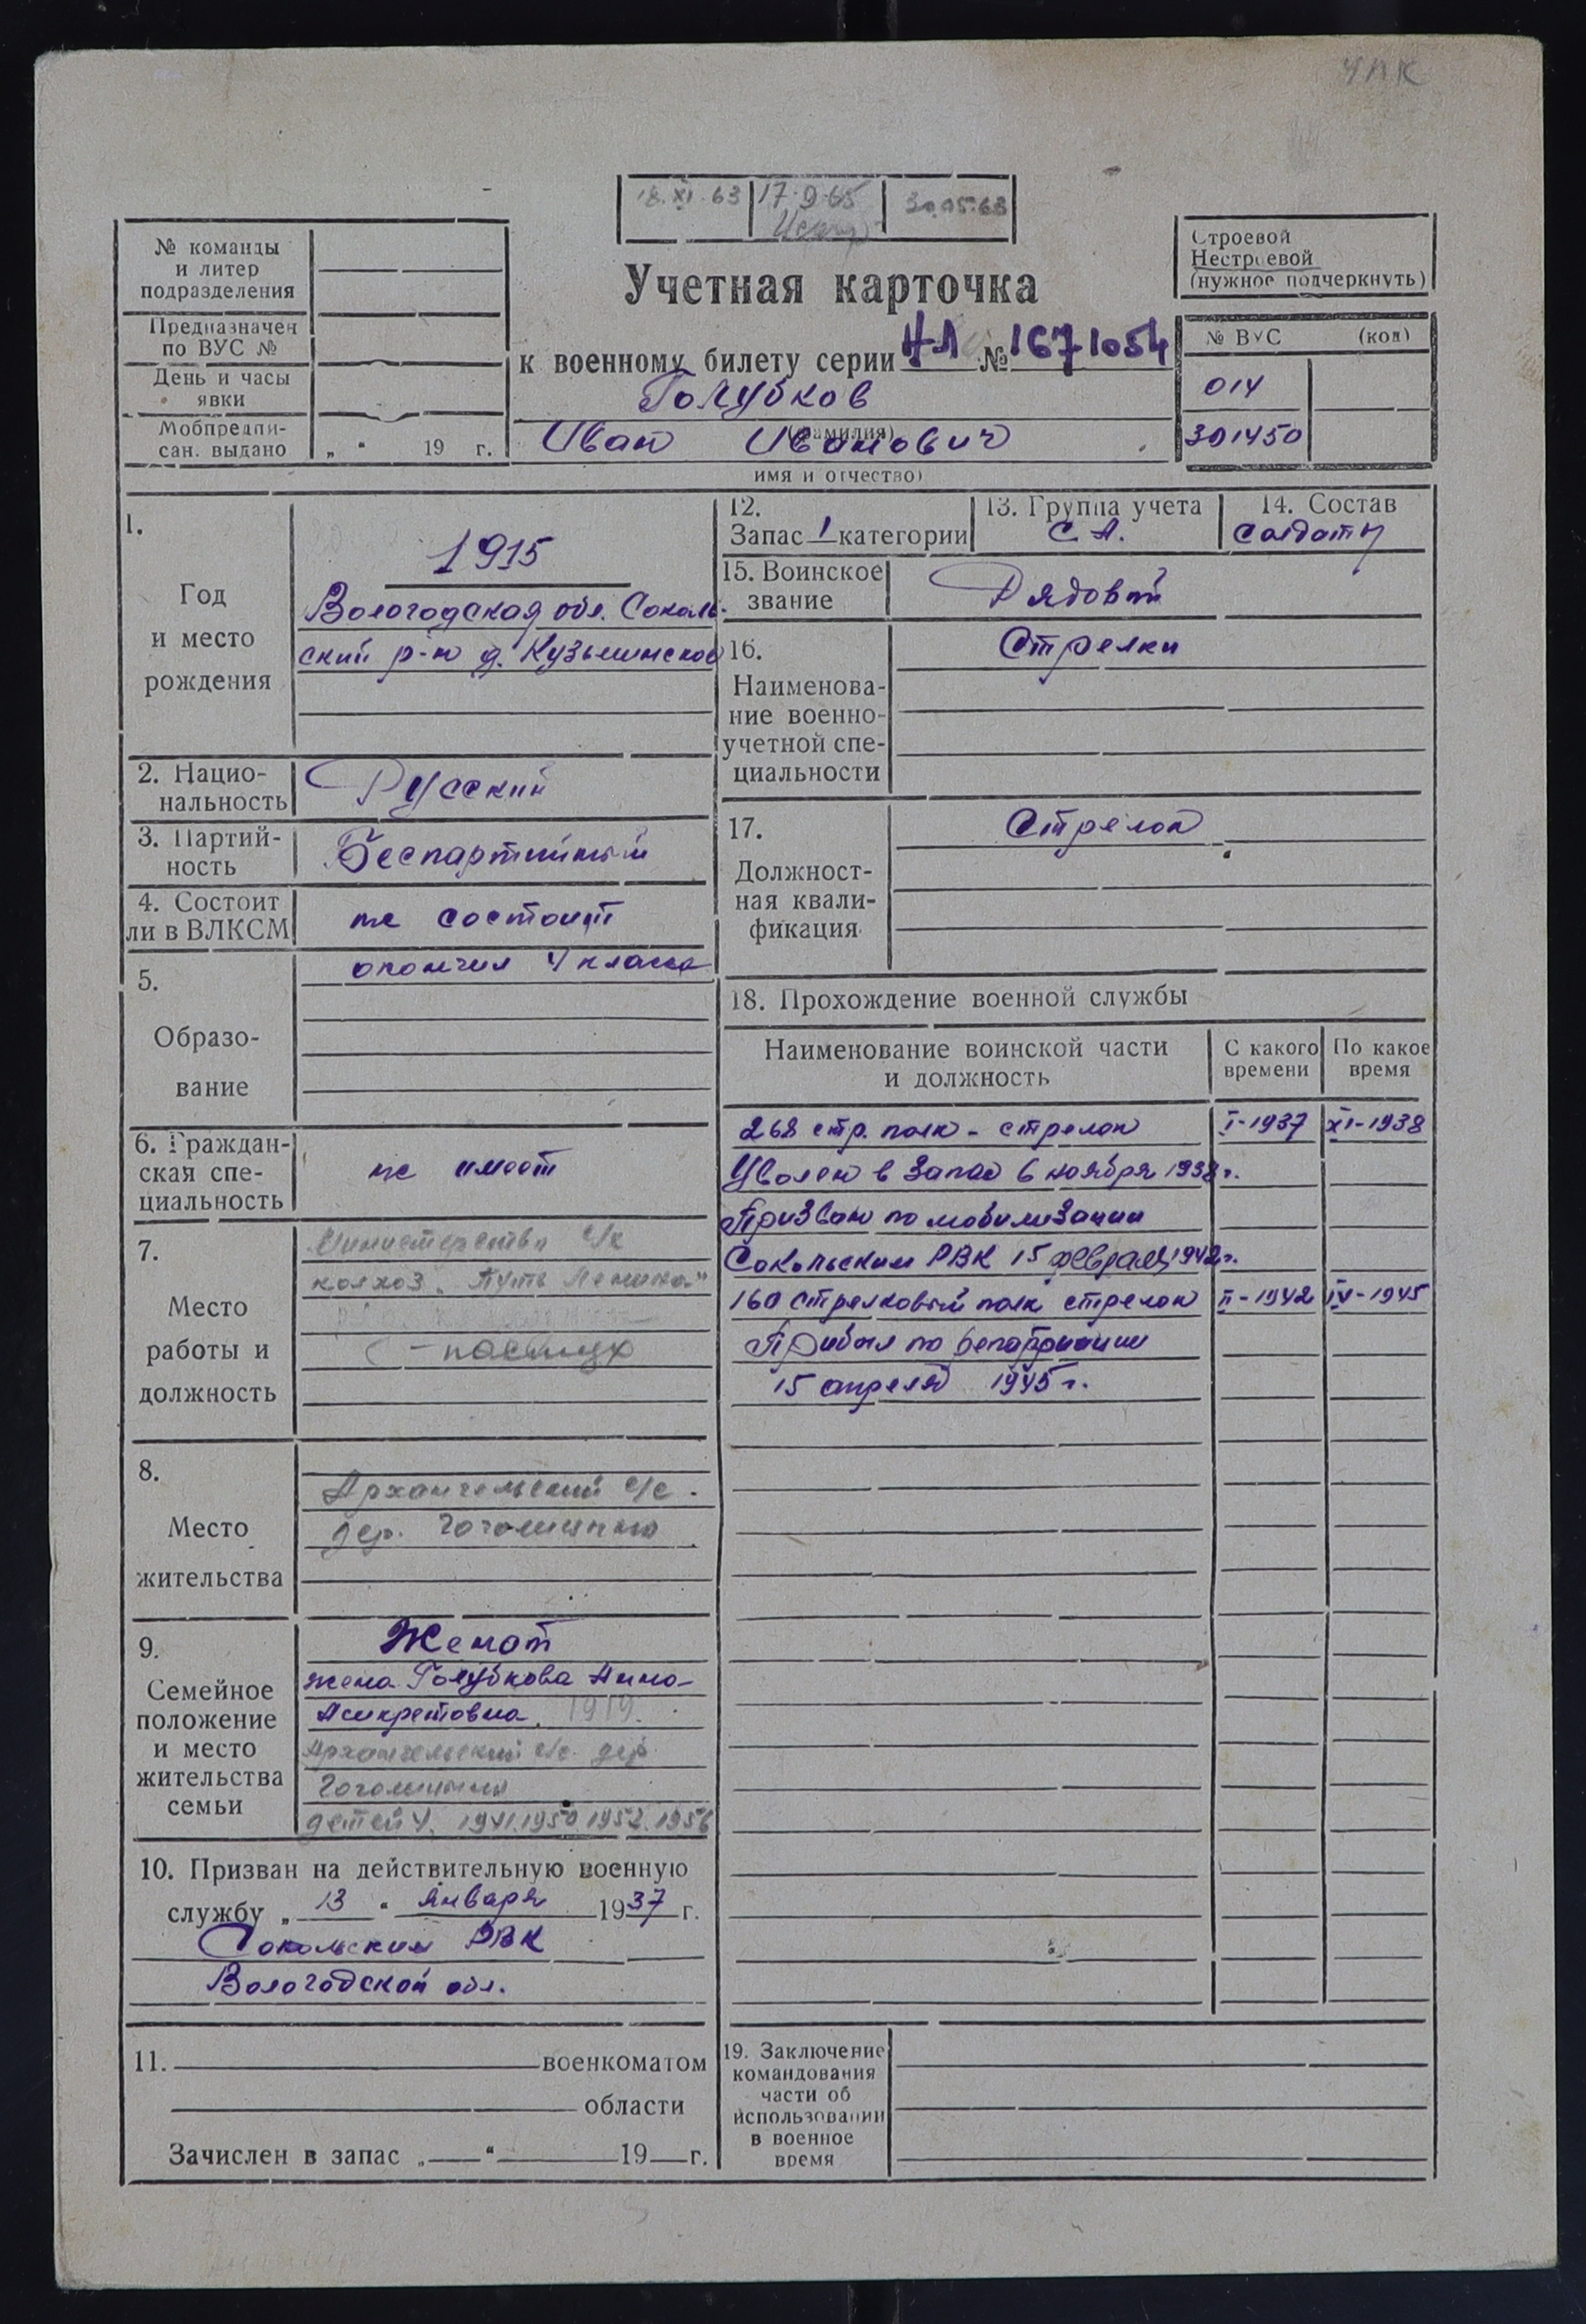 ЧПК
18.XI.63 17.9.65 30.05.68
№ команды
и литер
подразделения
Предназначен
по ВУС №
День и часы
явки
Мобпредпи-
сан. выдано „ “ 19 г.
Учетная карточка
к военному билету серии НЛ № 1671054
Голубков
(фамилия)
Иван Иванович
имя и отчество)
Строевой
Нестроевой
(нужное подчеркнуть)
№ ВУС (код)
014
301450
1.
Год
и место
рождения
1915
Вологодская обл. Соколь-
ский р-н д. Кузьминское
2. Нацио-
нальность
Русский
3. Партий-
ность
Беспартийный
4. Состоит
ли в ВЛКСМ
не состоит
5.
Образо-
вание
окончил 4 класса
6. Граждан-
ская спе-
циальность
не имеет
7.
Место
работы и
должность
Министерство с/х
колхоз „Путь Ленина“
- пастух
8.
Место
жительства
Архангельский с/с.
дер.
9.
Семейное
положение
и место
жительства
семьи
Женат
жена Голубкова Анна
Асикретовна. 1919.
Архангельский с/с. дер.
детей 4. 1941. 1950 1952. 1956
10. Призван на действительную военную
службу „ 13 “ января 1937 г.
Сокольским РВК
Вологодской обл.
11. военкоматом
области
Зачислен в запас „ “ 19 г.
12.
Запас 1 категории
13. Группа учета
С.А.
14. Состав
солдаты
15. Воинское
звание
Рядовой
16.
Наименова-
ние военно-
учетной спе-
циальности
Стрелки
17.
Должност-
ная квали-
фикация
Стрелок
18. Прохождение военной службы
Наименование воинской части
и должность
С какого
времени
По какое
время
268 стр. полк - стрелок I-1937 XI-1938
Уволен в запас 6 ноября 1938 г.
Призван по мобилизации
Сокольским РВК 15 февраля 1942 г.
160 стрелковый полк стрелок II-1942 IV-1945
Прибыл по репатриации
15 апреля 1945 г.
19. Заключение
командования
части об
использовании
в военное
время